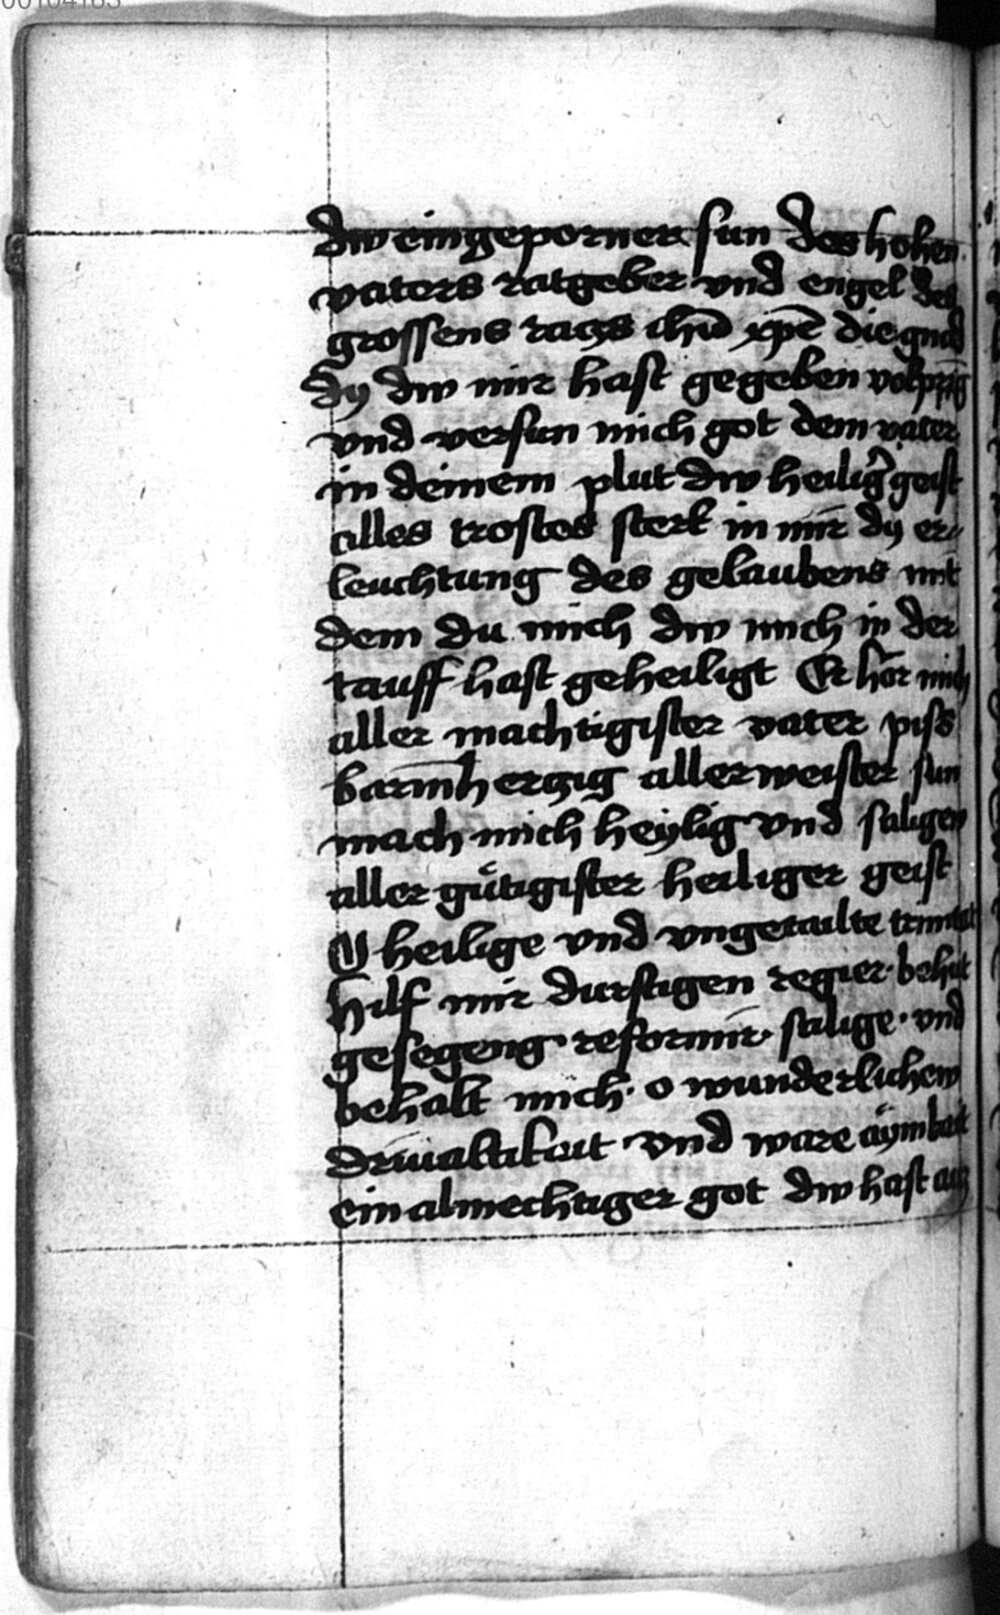 00104163
dw eingeporner sun des hohen
vaters ratgeber vnd engel des
grossens ratzs ihū xpē die gnad
dy dw mir hast gegeben volpring
vnd versun mich got dem vater
in deinem plut dw heilig̃ geist
alles trostes sterk in mir dy er⸗
leuchtung des gelaubens mit
dem du mich dw mich in der
tauff hast geheiligt Er hör mich
aller machtigister vater piss
barm̄hertzig aller weister sun
mach mich heylig vnd saligen
aller gütigister heiliger geist
O heilige vnd vngetailte trinitat
hilf mir durstigen regier · behut
gesegeng reformir · salige · vnd
behalt mich · o wunderlichew
driualtikait vnd ware aÿmkait
ein almechtiger got dw hast